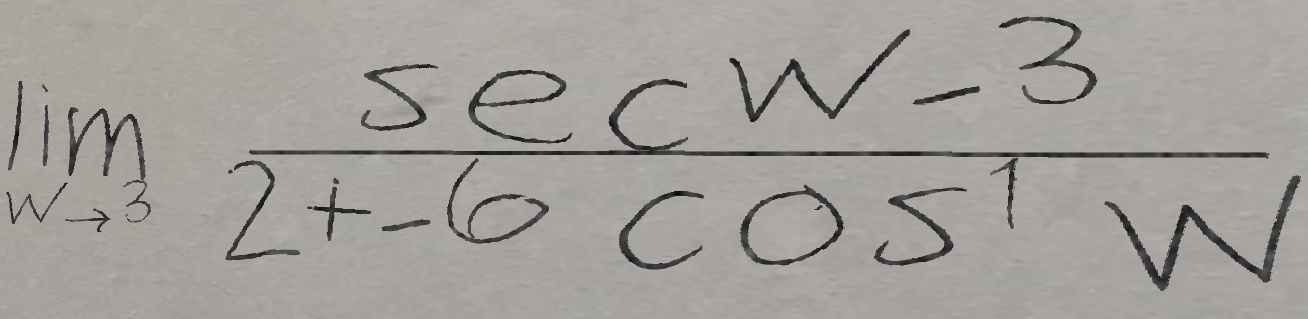 \lim_{w \to 3} \frac{\sec w - 3}{2 + -6 \cos^1 w}